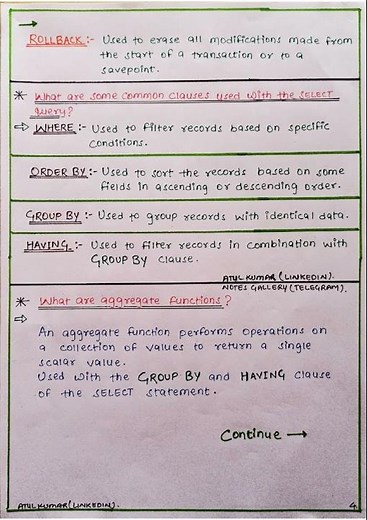 →
ROLLBACK :- Used to erase all modifications made from
the start of a transaction or to a
savepoint.
* What are some common clauses used with the SELECT
query?
⇨ WHERE :- Used to filter records based on specific
conditions.
ORDER BY :- Used to sort the records based on some
fields in ascending or descending order.
GROUP BY :- Used to group records with identical data.
HAVING :- Used to filter records in combination with
GROUP BY clause.
ATUL KUMAR (LINKEDIN).
NOTES GALLERY (TELEGRAM).
* What are aggregate functions ?
⇨
An aggregate function performs operations on
a collection of values to return a single
scalar value.
Used with the GROUP BY and HAVING clause
of the SELECT statement.
Continue →
ATUL KUMAR (LINKEDIN).
4